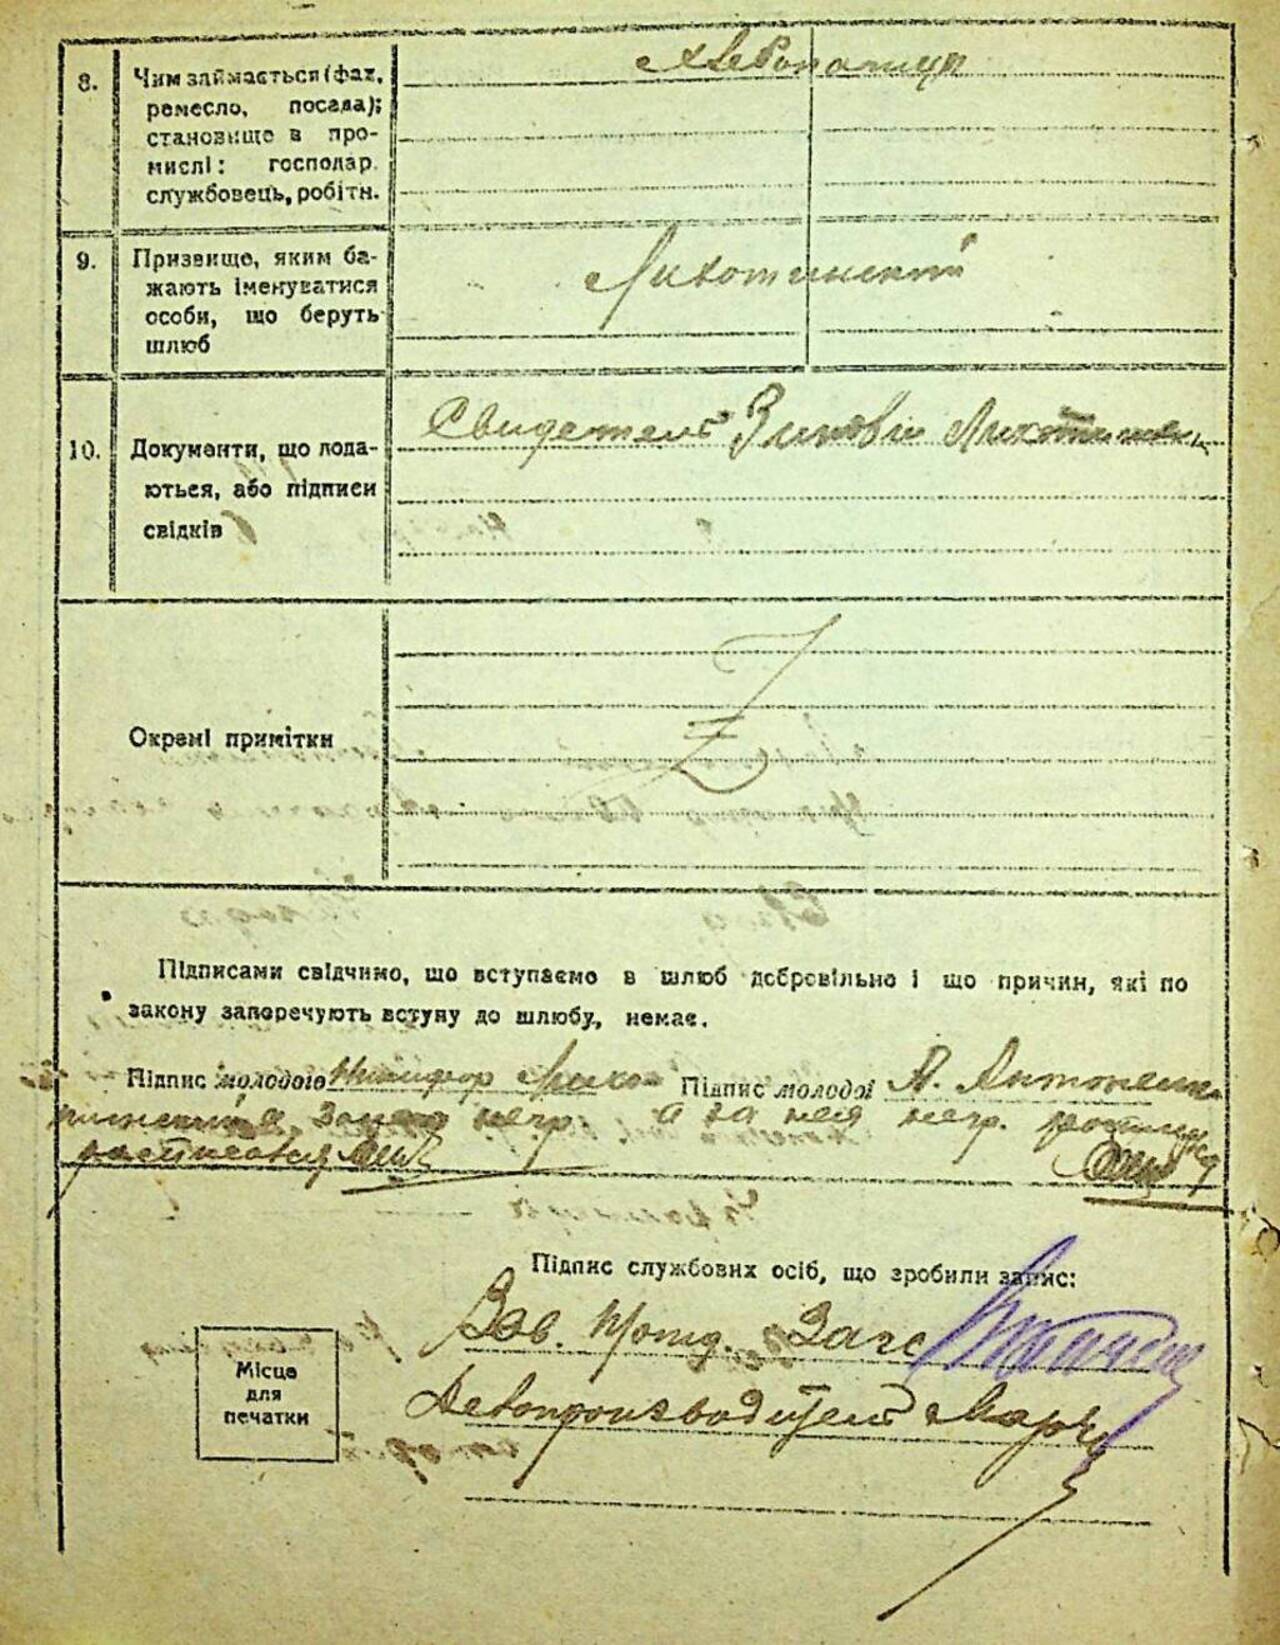 8. Чим займається (фах, ремесло, посада); становище в про-мислі: господар. службовець, робітн.
Хлеборобница
9. Призвище, яким ба-
жають іменуватися
особи, що беруть
шлюб
Лихотинский
10. Документи, що пода-
ються, або підписи
свідків
Свидетель Зиновій Лихотинский
Окремі примітки
Z
Підписами свідчимо, що вступаємо в шлюб добровільно і що причин, які по
закону заперечують вступу до шлюбу, немає.
Підпис молодого Никифор Лихо- Підпис молодої А. Антоненко
тинский а за него негр. а за нея негр.
расписався
Підпис службових осіб, що зробили запис:
Зав. Загс
Делопроизводитель
Місце
для
печатки